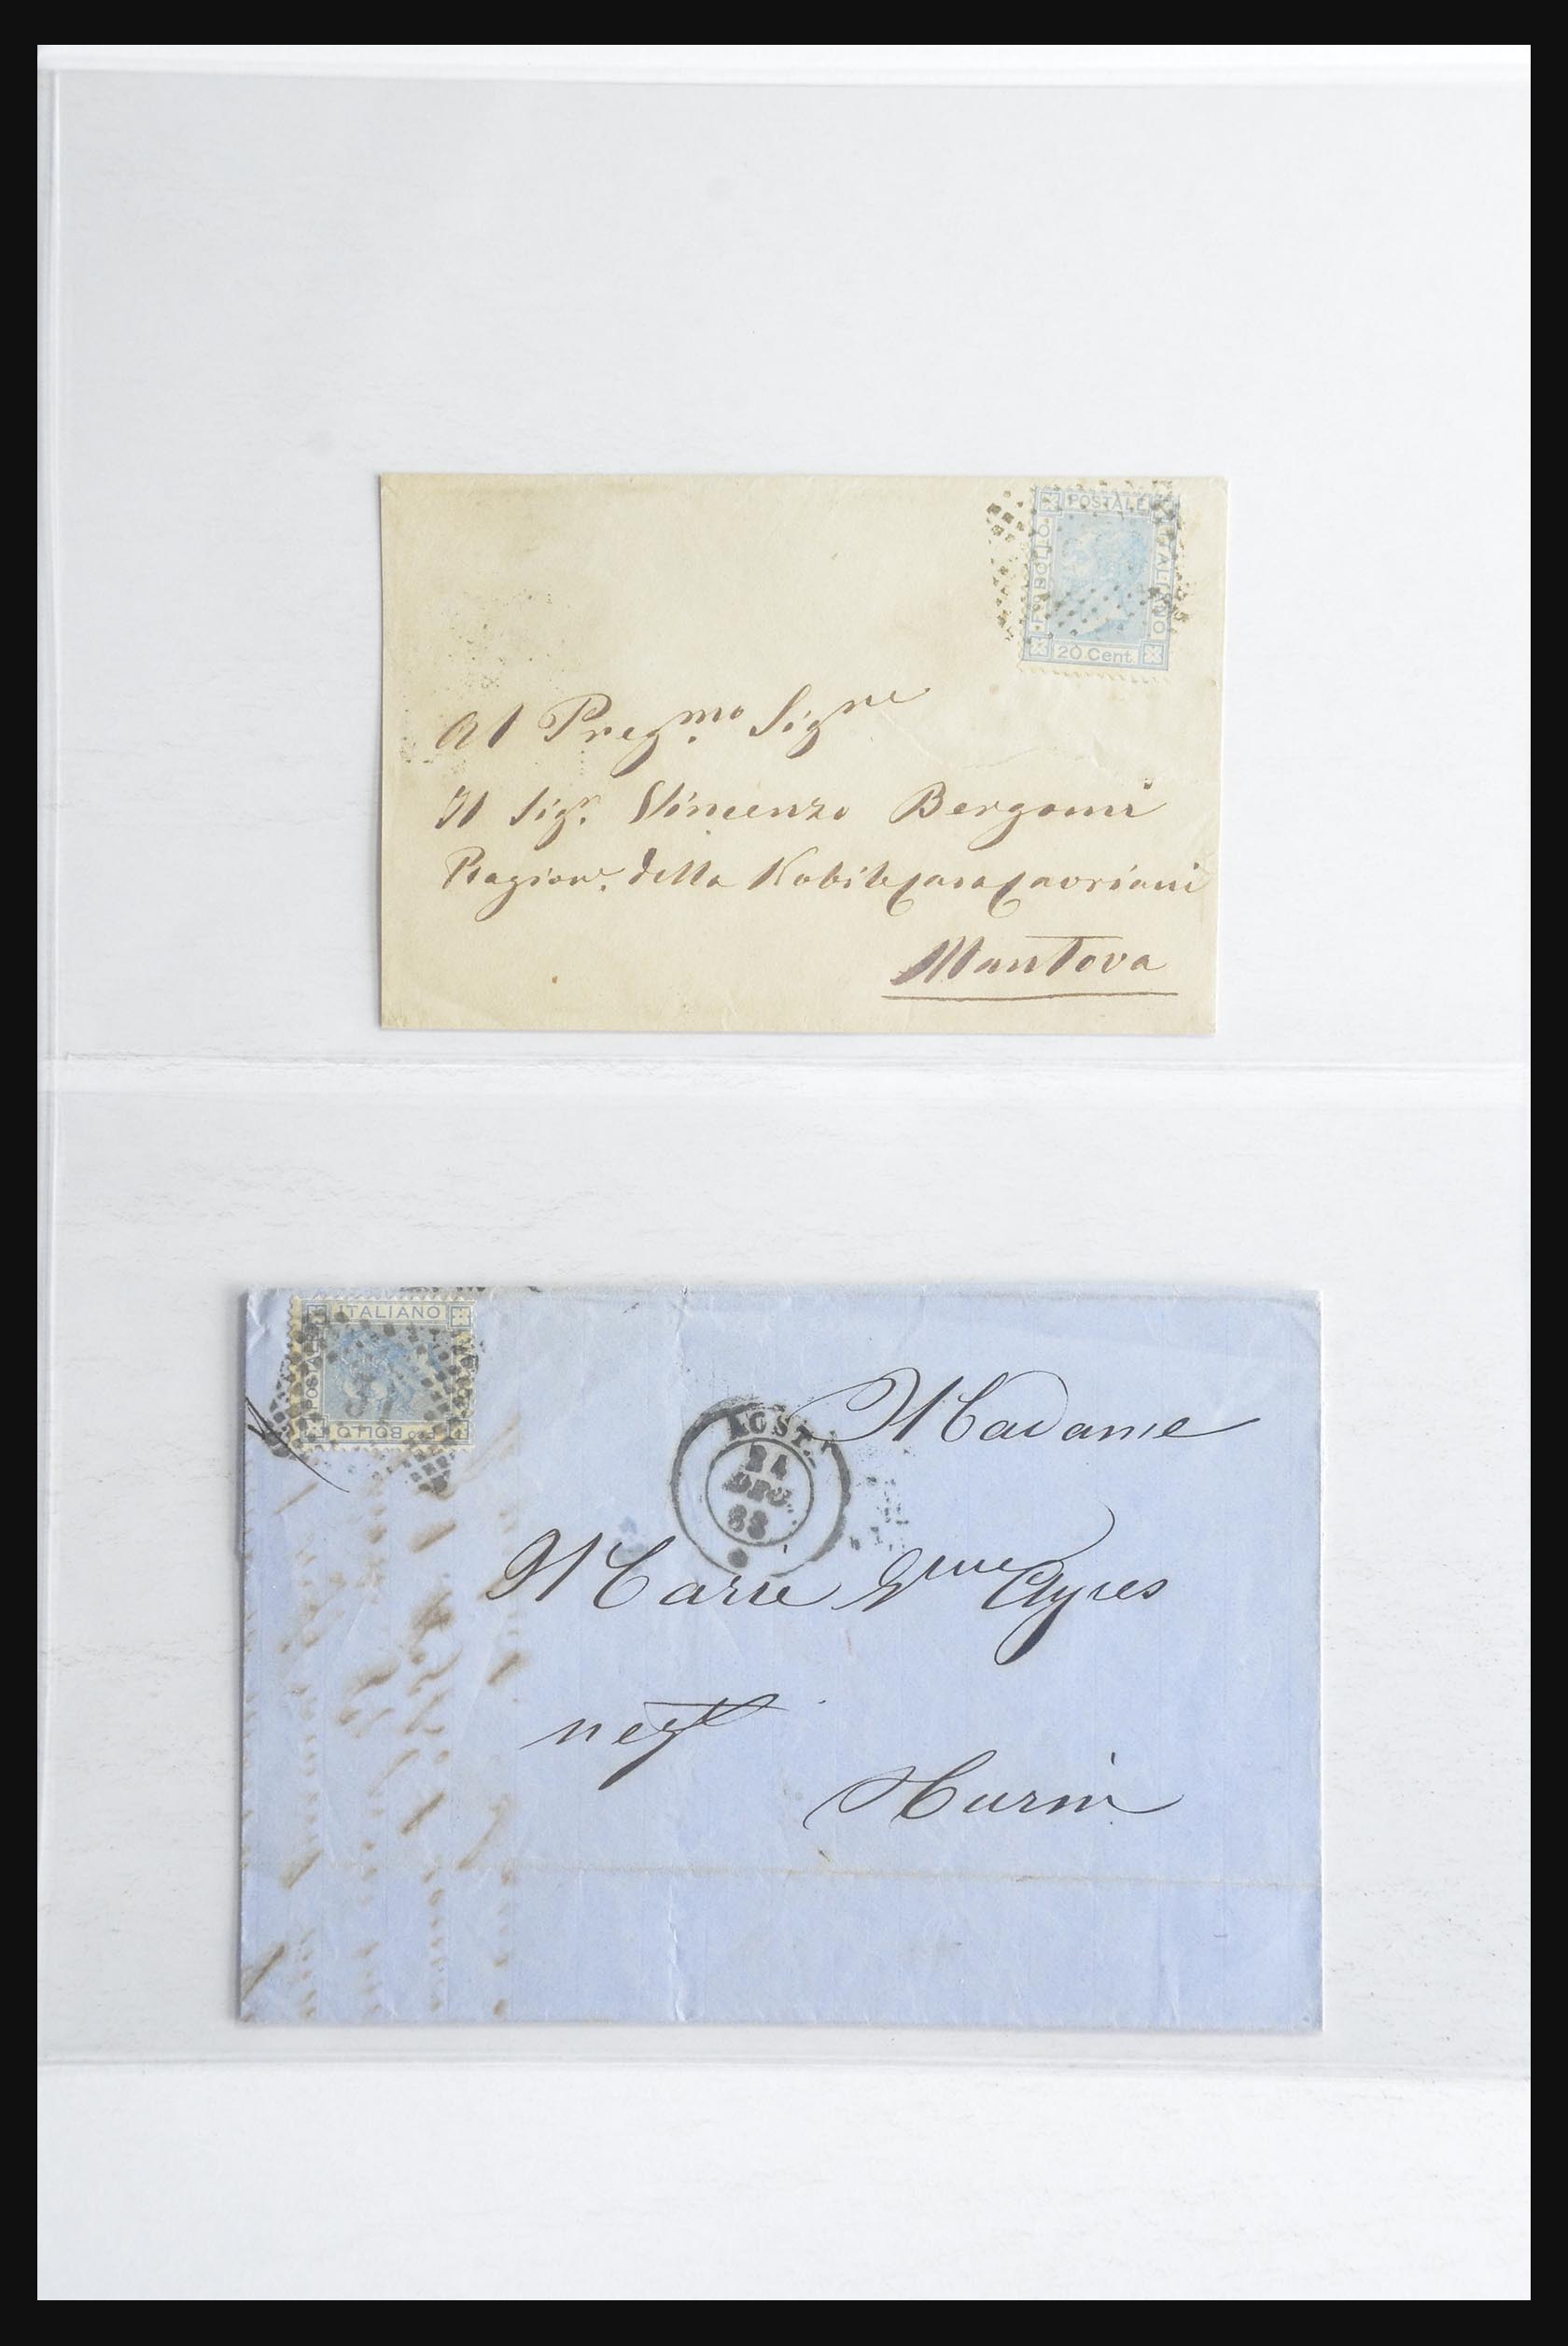 POSTALE
F.co BOLLO
ITALIANO
20 Cent.
Al Pregmo. Sigre
Il Sigr. Vincenzo Bergomi
Ragione. della Nobile Casa Cavriani
Mantova
ITALIANO
POSTALE
F.co BOLLO
AOSTA
24
DEC
68
Madame
Marie Ayres
negt
Turin